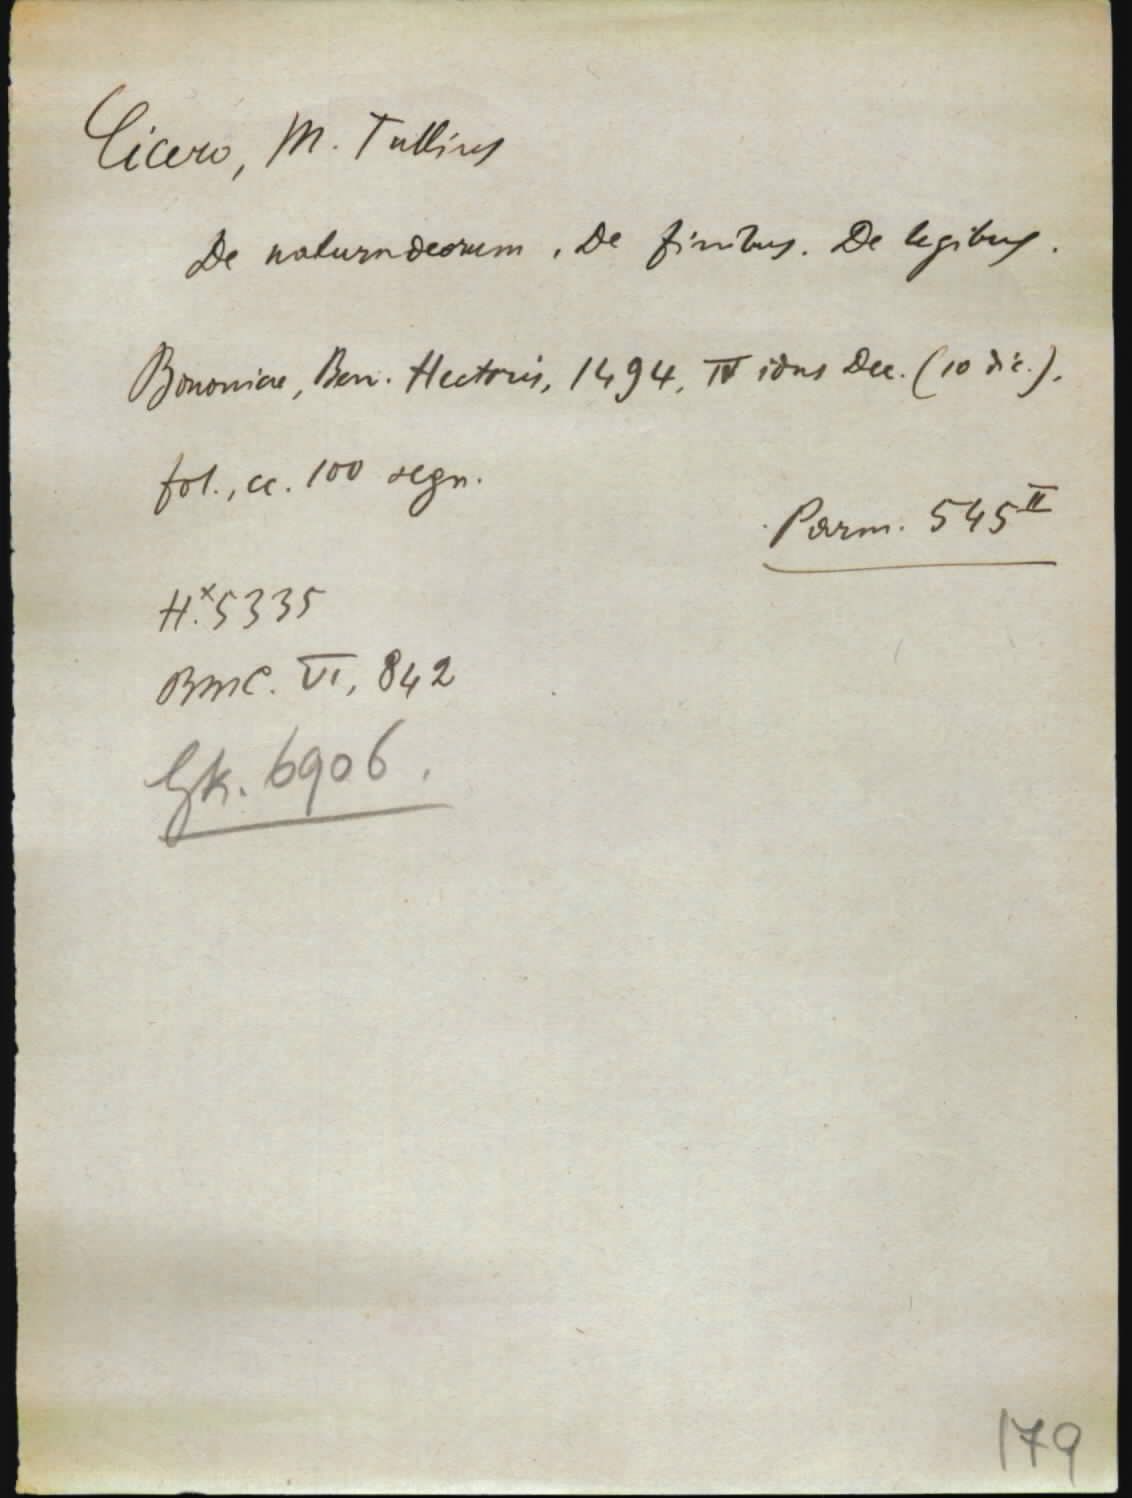 Cicero, M. Tullius
De natura deorum. De finibus. De legibus.
Bononiae, Ben. Hectoris, 1494, IV idus Dec. (10 dic.).
fol., cc. 100 segn.
Parm. 545 II
H.x 5335
BMC. VI, 842
Gk. 6906.
179